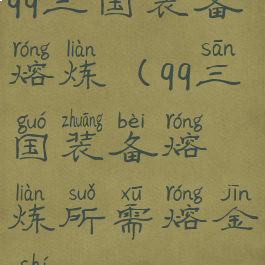 qq三国装备
róng liàn sān
熔炼(qq三
guó zhuāng bèi róng
国装备熔
liàn suǒ xū róng jīn
炼所需熔金
shí